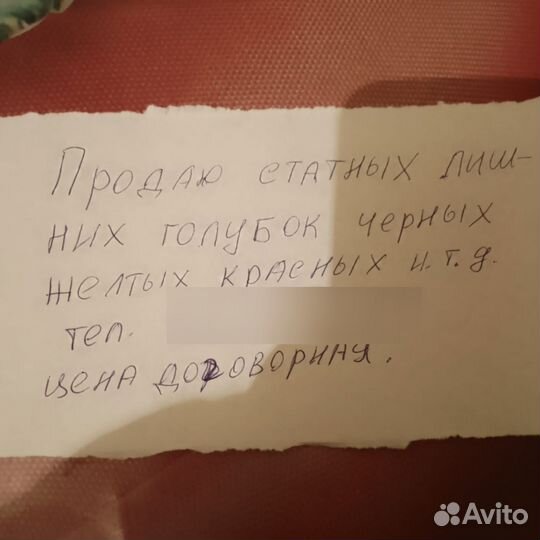 Продаю статных лиш-
них голубок черных
желтых красных и.т.д.
тел.
цена договориня.
Avito